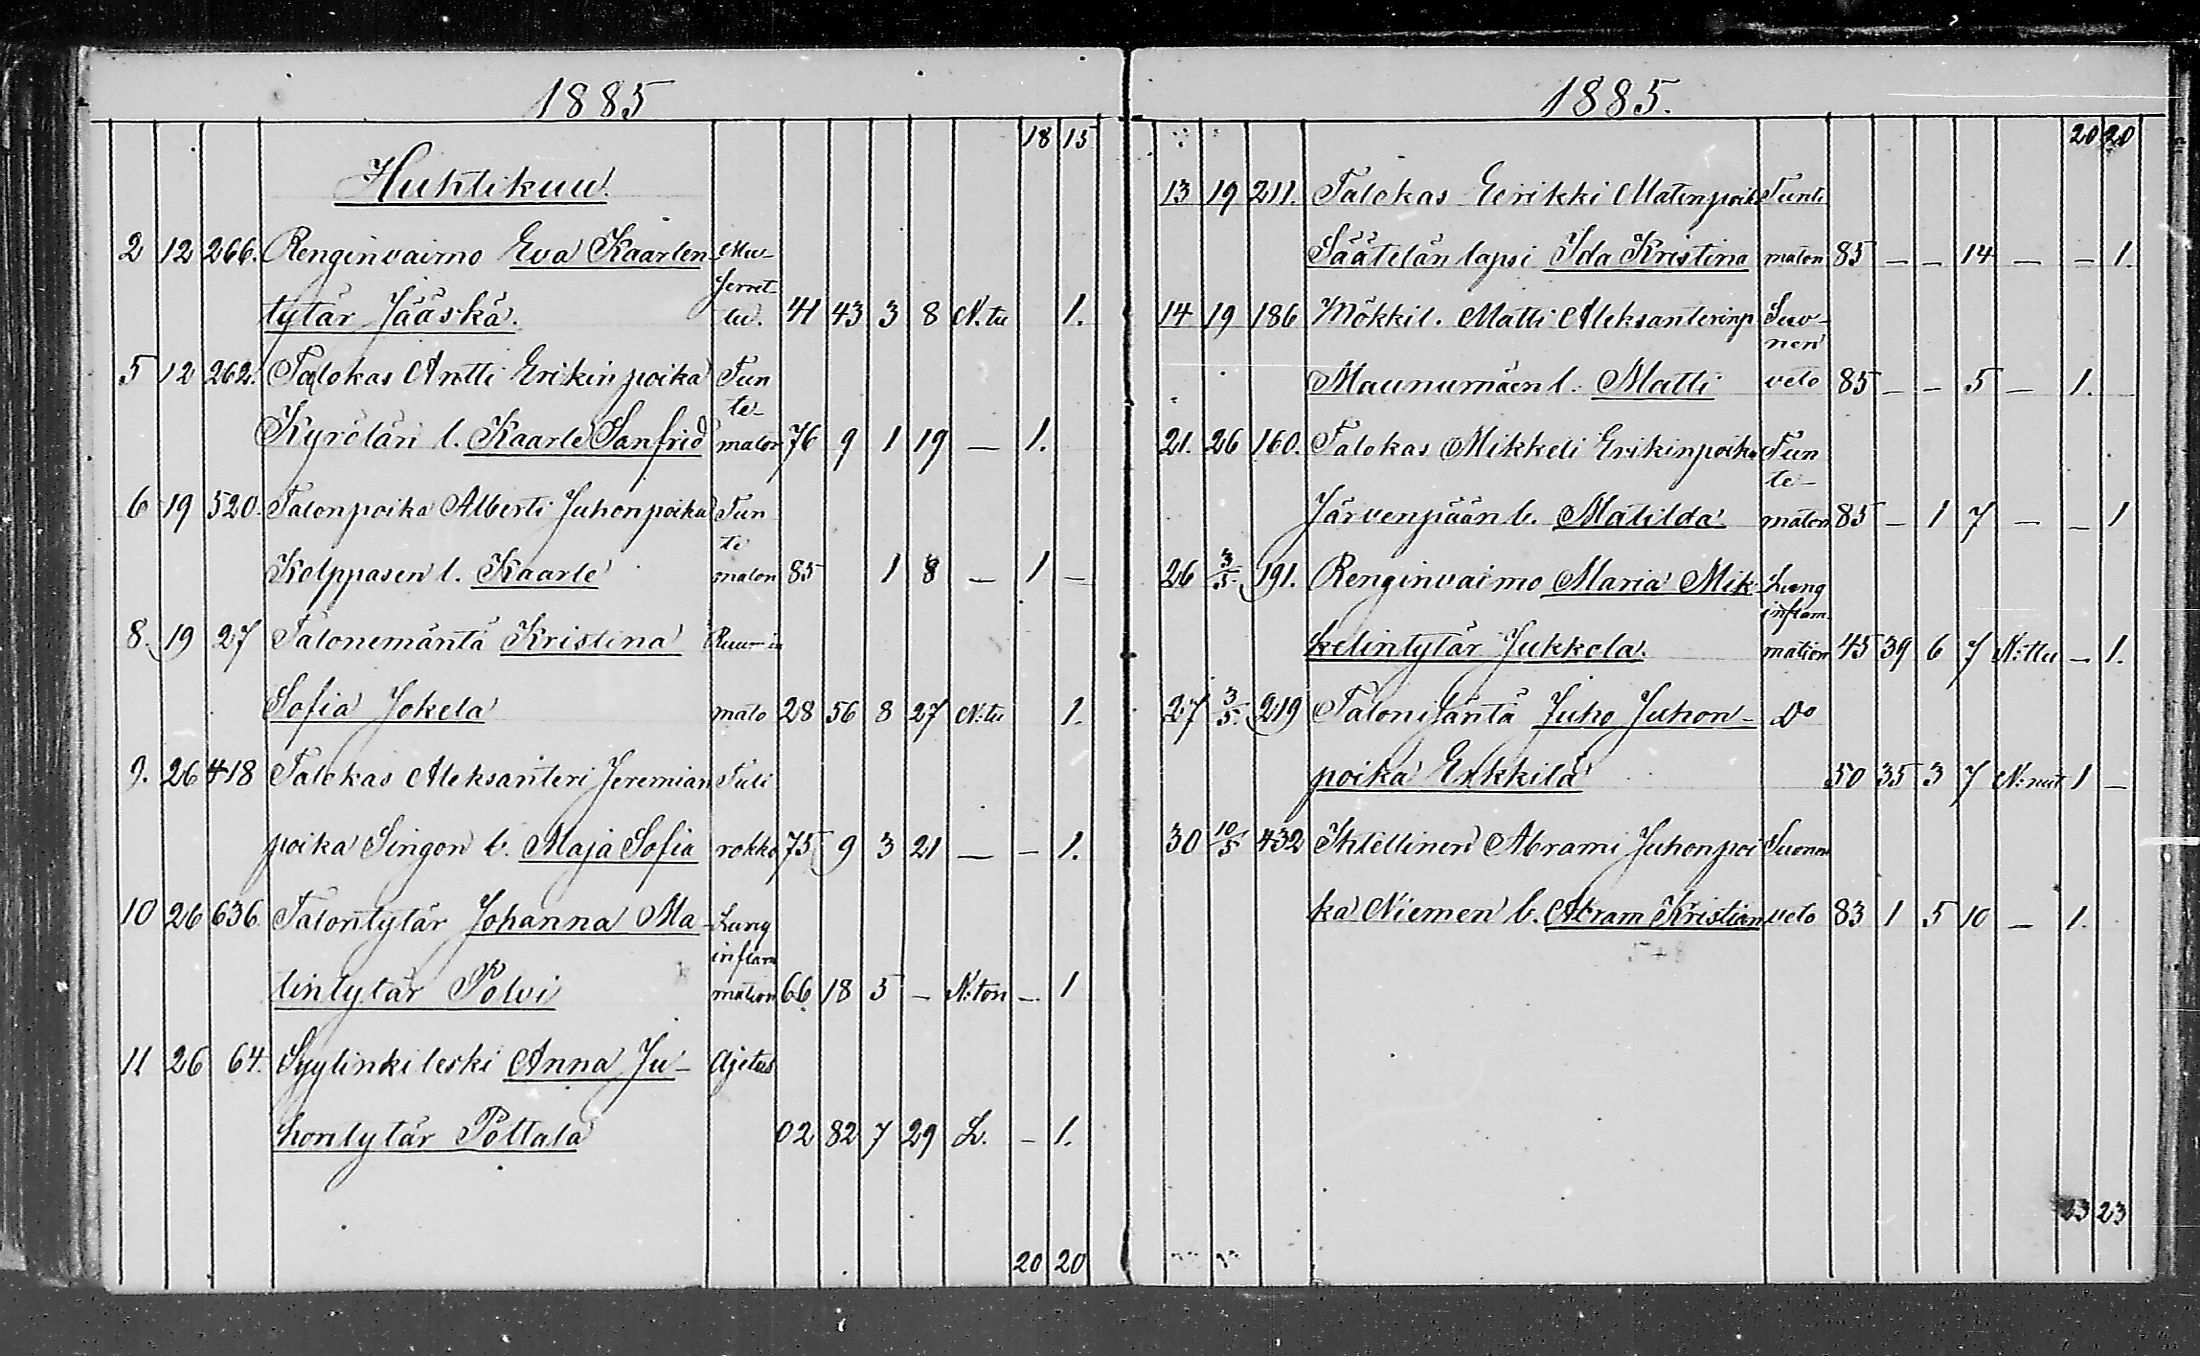 1885
18 15
Huhtikuu.
2 12 266. Renginvaimo Eva Kaarlen-
tytär Jääskä. 41 43 3 8 N.tu 1.
5 12 262. Talokas Antti Erikinpoika Tun
te-
Kyrölän l. Kaarle Sanfrid maton 76 9 1 19 — 1.
6 19 520. Talonpoika Alberti Juhonpoika Tun
te
Kolppasen l. Kaarle maton 85 1 8 — 1 —
8. 19 27 Talonemäntä Kristina
Sofia Jokela mato 28 56 8 27 N:tu 1.
9. 26 418 Talokas Aleksanteri Jeremian Tuli
poika Singon l. Maja Sofia rokko 75 9 3 21 — — 1.
10 26 636. Talontytär Johanna Ma- Lung
inflam
tintytär Polvi mation 66 18 5 — N:ton — 1
11 26 64. Syytinkileski Anna Ju- Ajetus
hontytär Pottala 02 82 7 29 L. — 1.
20 20
1885.
20 20
13 19 211. Talokas Eerikki Matinpoika Tunte
Säätelän lapsi Ida Kristina maton 85 — — 14 — — 1.
14 19 186 Mökkil. Matti Aleksanterinp Suo-
nen
Maunumäen l. Matti veto 85 — — 5 — 1.
21. 26 160. Talokas Mikkeli Erikinpoika Tun
te-
Järvenpään l. Matilda maton 85 — 1 7 — — 1
26 3/5. 191. Renginvaimo Maria Mik- Lung
inflam
kelintytär Jukkola. mation 45 39 6 7 N:ttu — 1.
27 3/5. 219 Talonisäntä Juho Juhon- Do
poika Erkkilä 50 35 3 7 N:nut 1 —
30 10/5 432 Ihtellinen Abrami Juhonpoi Suonen
ka Niemen l. Abram Kristian veto 83 1 5 10 — 1.
23 23